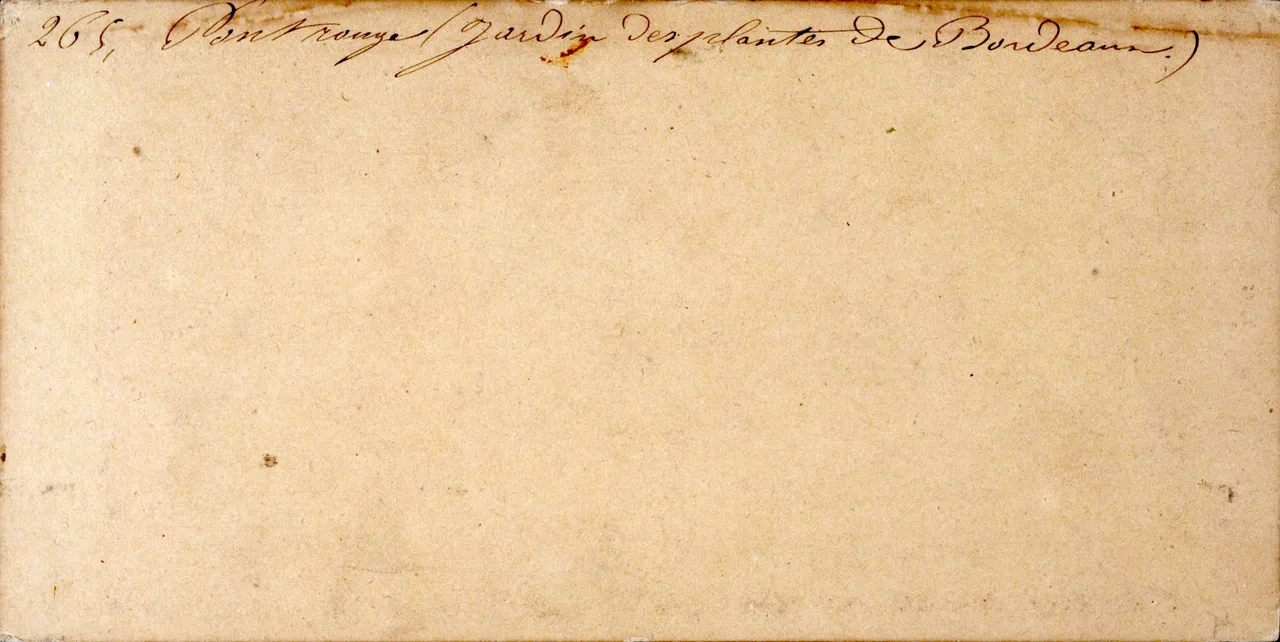 265, Pont rouge (Jardin des plantes de Bordeaux.)